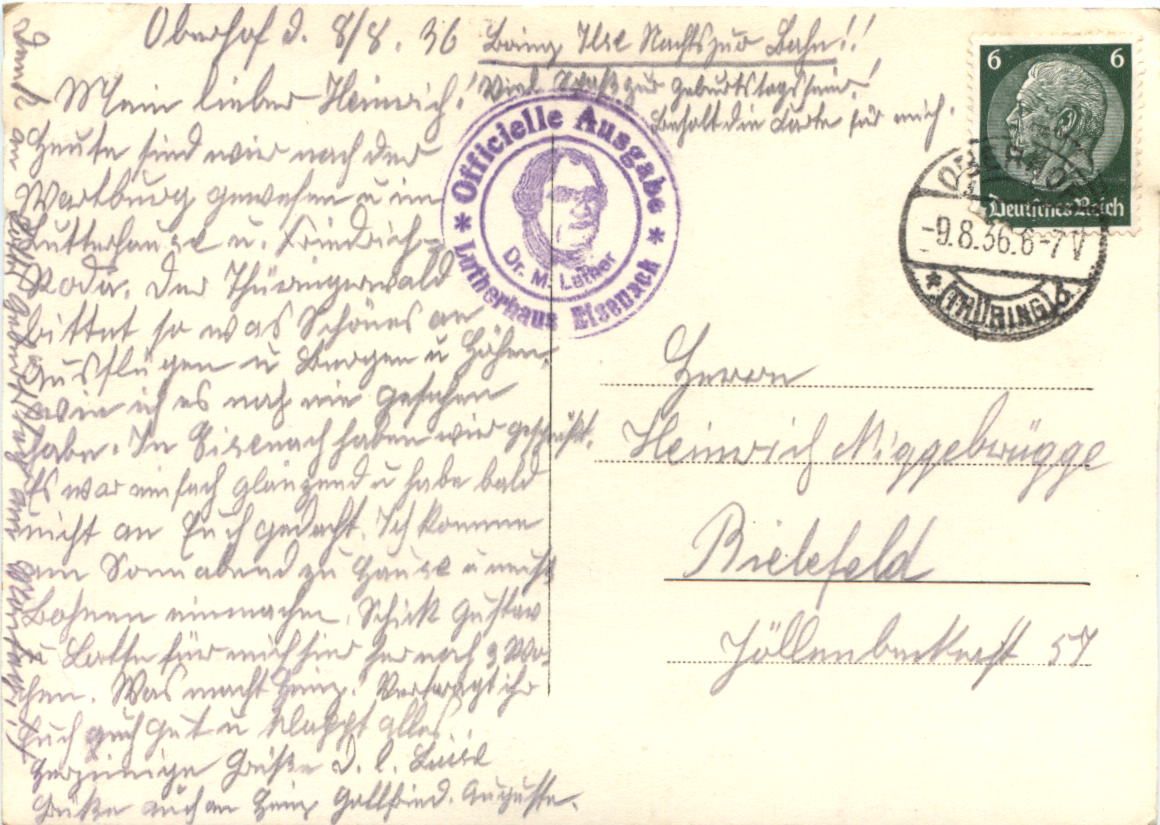 Oberhof d. 8/8. 36
Bring Ilse Nachts zur Bahn!!
Viel Spaß zur Geburtstagsfeier!
Behalt die Karte für mich.
Mein lieber Heinrich!
Heute sind wir nach der
Wartburg gewesen u im
Lutterhause u. Friedrich-
Roda. Der Thüringerwald
bittet so was Schönes an
Ausflügen u Burgen u Höhen,
wie ich es noch nie gesehen
habe. In Eisenach haben wir gespeist.
Es war einfach glänzend u habe bald
nicht an Euch gedacht. Ich komme
am Sonnabend zu Hause u
Bohnen einmachen. Schick Gustav
u Lotte für mich hier her noch 3 Wo-
chen. Was macht Heinz. Vertragt ihr
Euch auch gut u klappt alles
Herzinnige Grüße d. l.
Grüße auch an Heinz Gottfried. Auguste.
Denk an
Officielle Ausgabe
Dr. M. Luther
Lutherhaus Eisenach
6 6
Deutsches Reich
OBERHOF
-9.8.36.6-7V
(THÜRING)
Herrn
Heinrich Niggebrügge
Bielefeld
Jöllenbeckerst 57